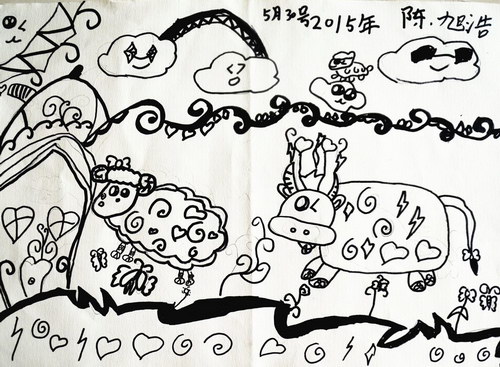 5月30号2015年 陈.旭浩